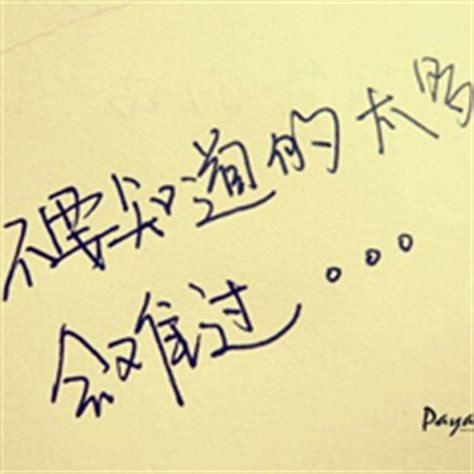 不要知道的太明
会难过。。。
Paya